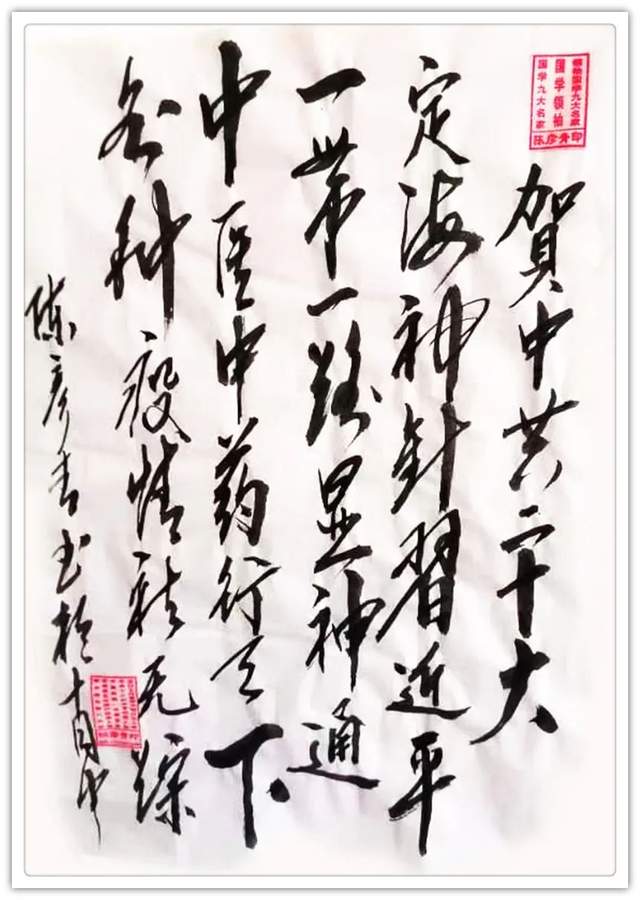 国学领袖
国学九大名家
陈彦青印
賀中共二十大
定海神針習近平
一带一路显神通
中医中药行天下
各种疫情无踪
陈彦青书於十月中